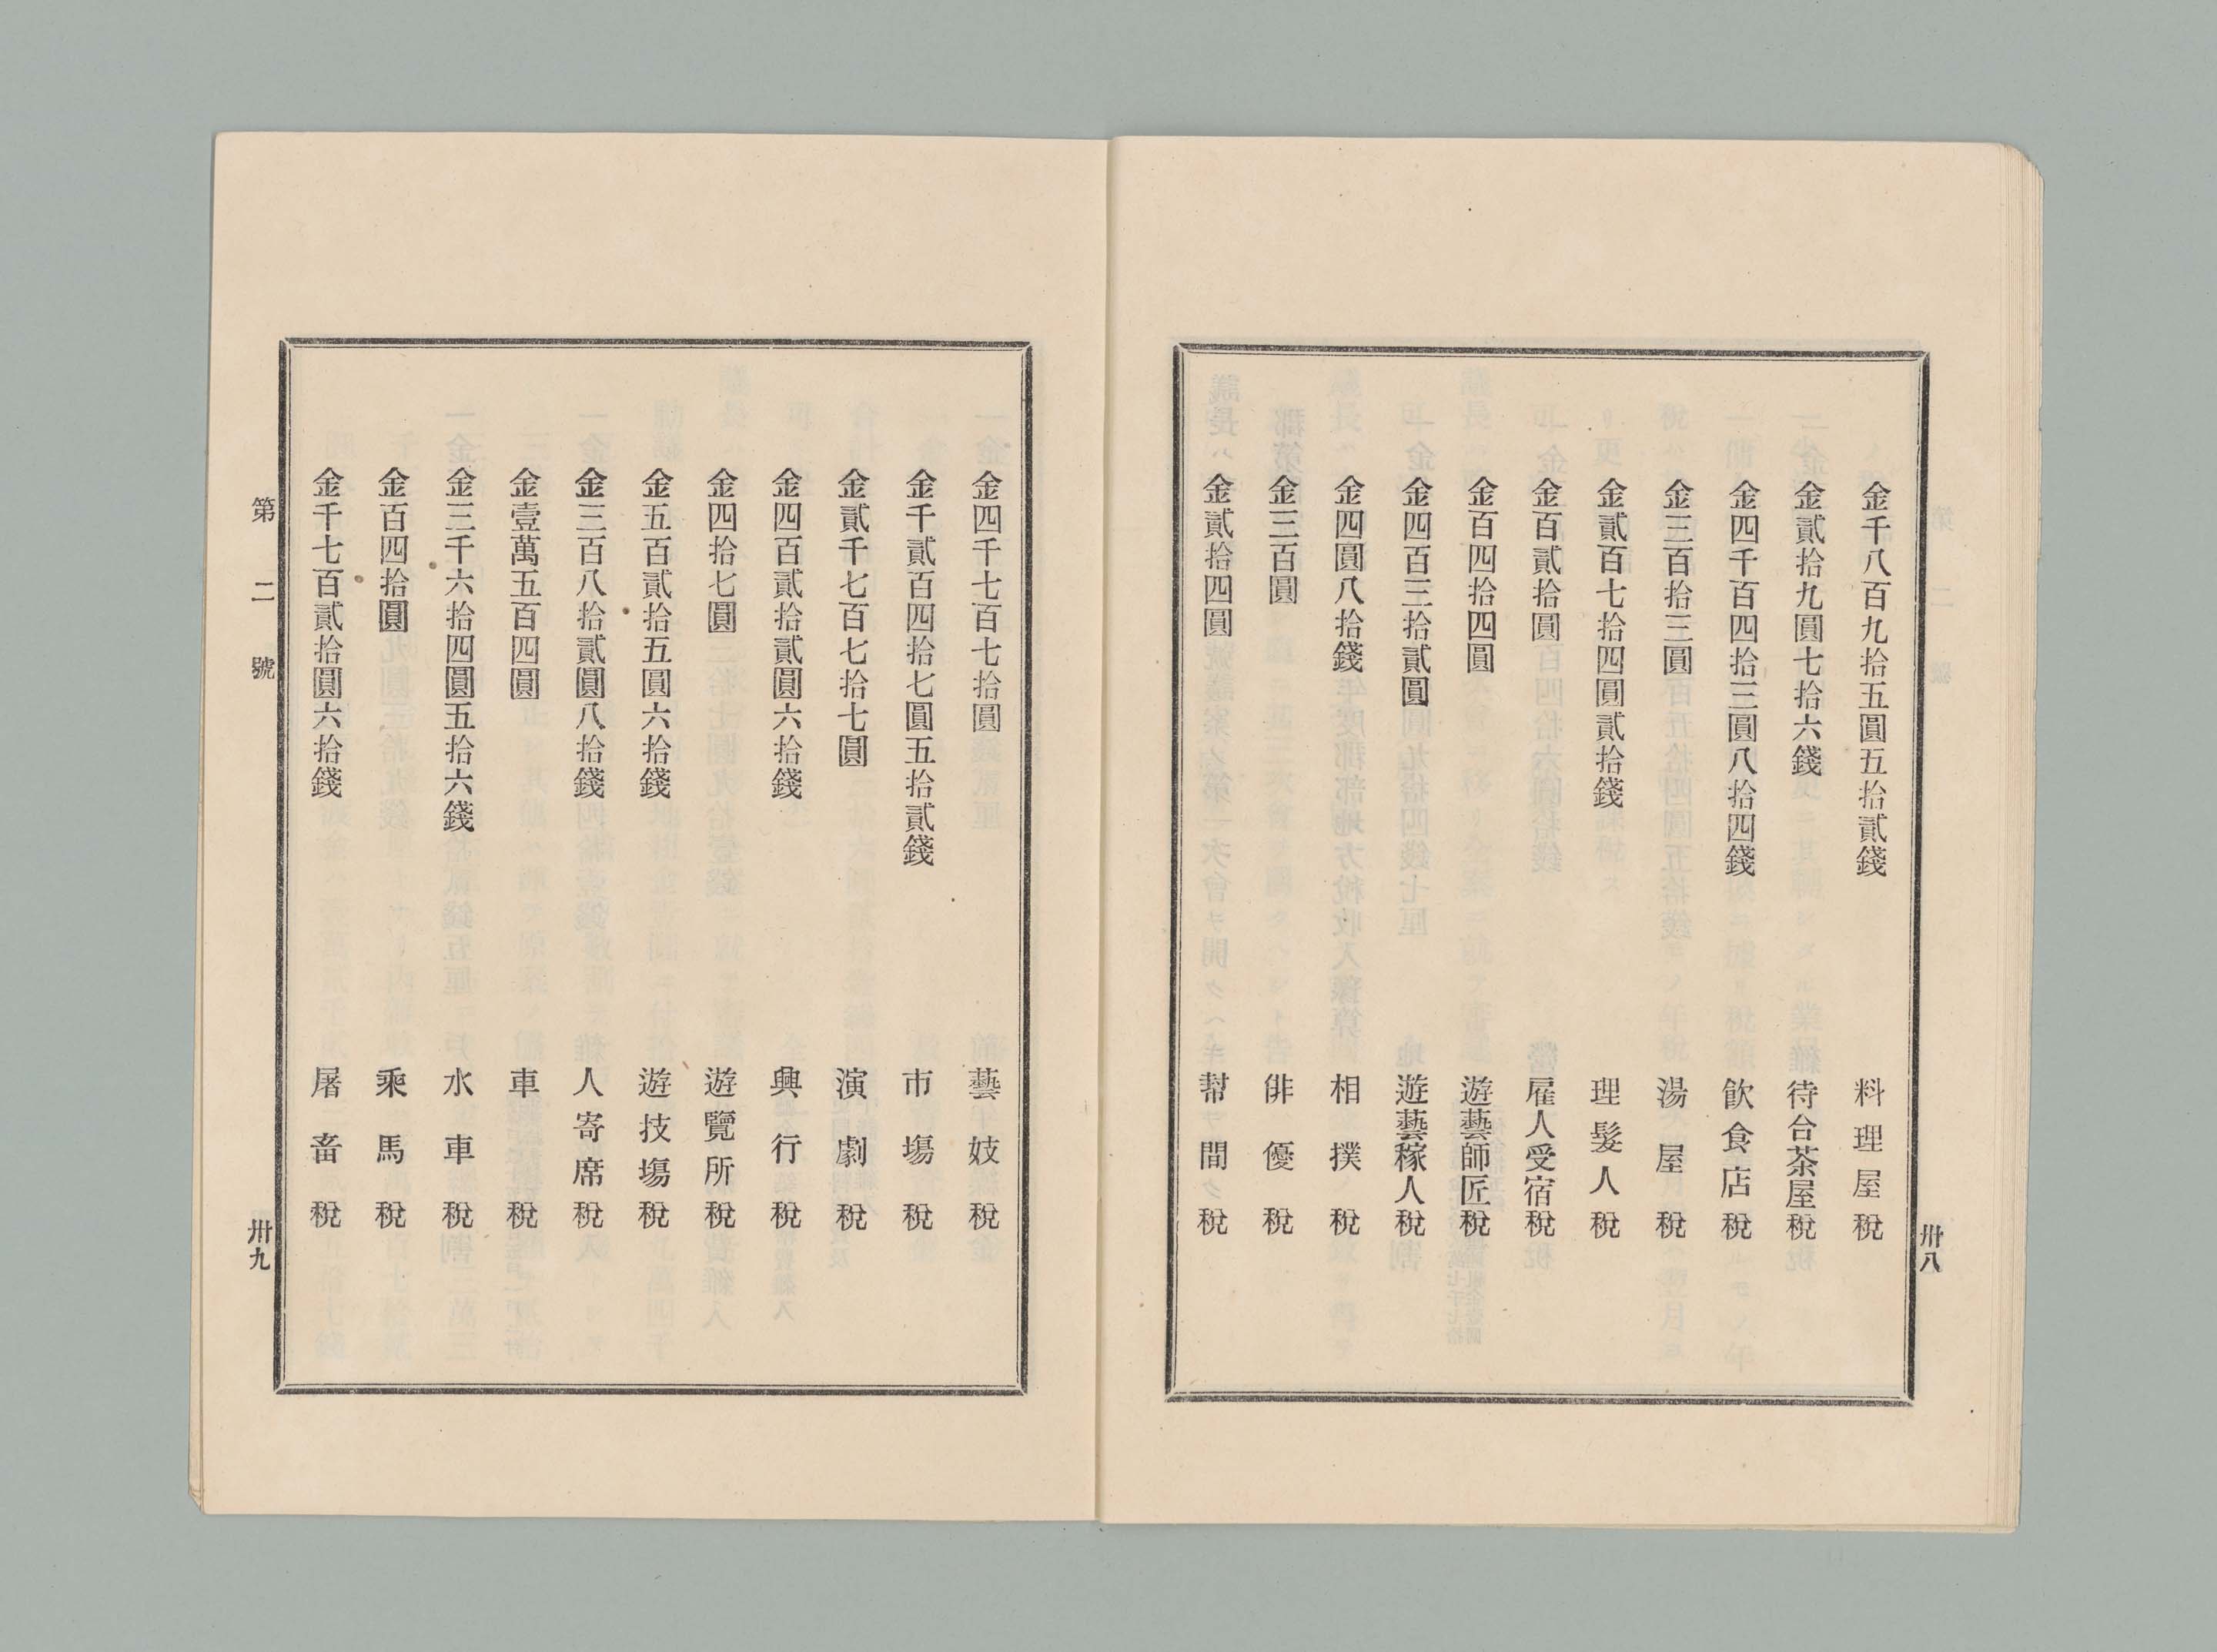 金千八百九拾五圓五拾貳錢 料理屋稅
金貳拾九圓七拾六錢 待合茶屋稅
金四千百四拾三圓八拾四錢 飮食店稅
金三百拾三圓 湯屋稅
金貳百七拾四圓貳拾錢 理髮人稅
金百貳拾圓 雇人受宿稅
金百四拾四圓 遊藝師匠稅
金四百三拾貳圓 遊藝稼人稅
金四圓八拾錢 相撲稅
金三百圓 俳優稅
金貳拾四圓 幇間稅
卅八
金四千七百七拾圓 藝妓稅
金千貳百四拾七圓五拾貳錢 市場稅
金貳千七百七拾七圓 演劇稅
金四百貳拾貳圓六拾錢 興行稅
金四拾七圓 遊覽所稅
金五百貳拾五圓六拾錢 遊技塲稅
金三百八拾貳圓八拾錢 人寄席稅
金壹萬五百四圓 車稅
金三千六拾四圓五拾六錢 水車稅
金百四拾圓 乘馬稅
金千七百貳拾圓六拾錢 屠畜稅
第二號
卅九